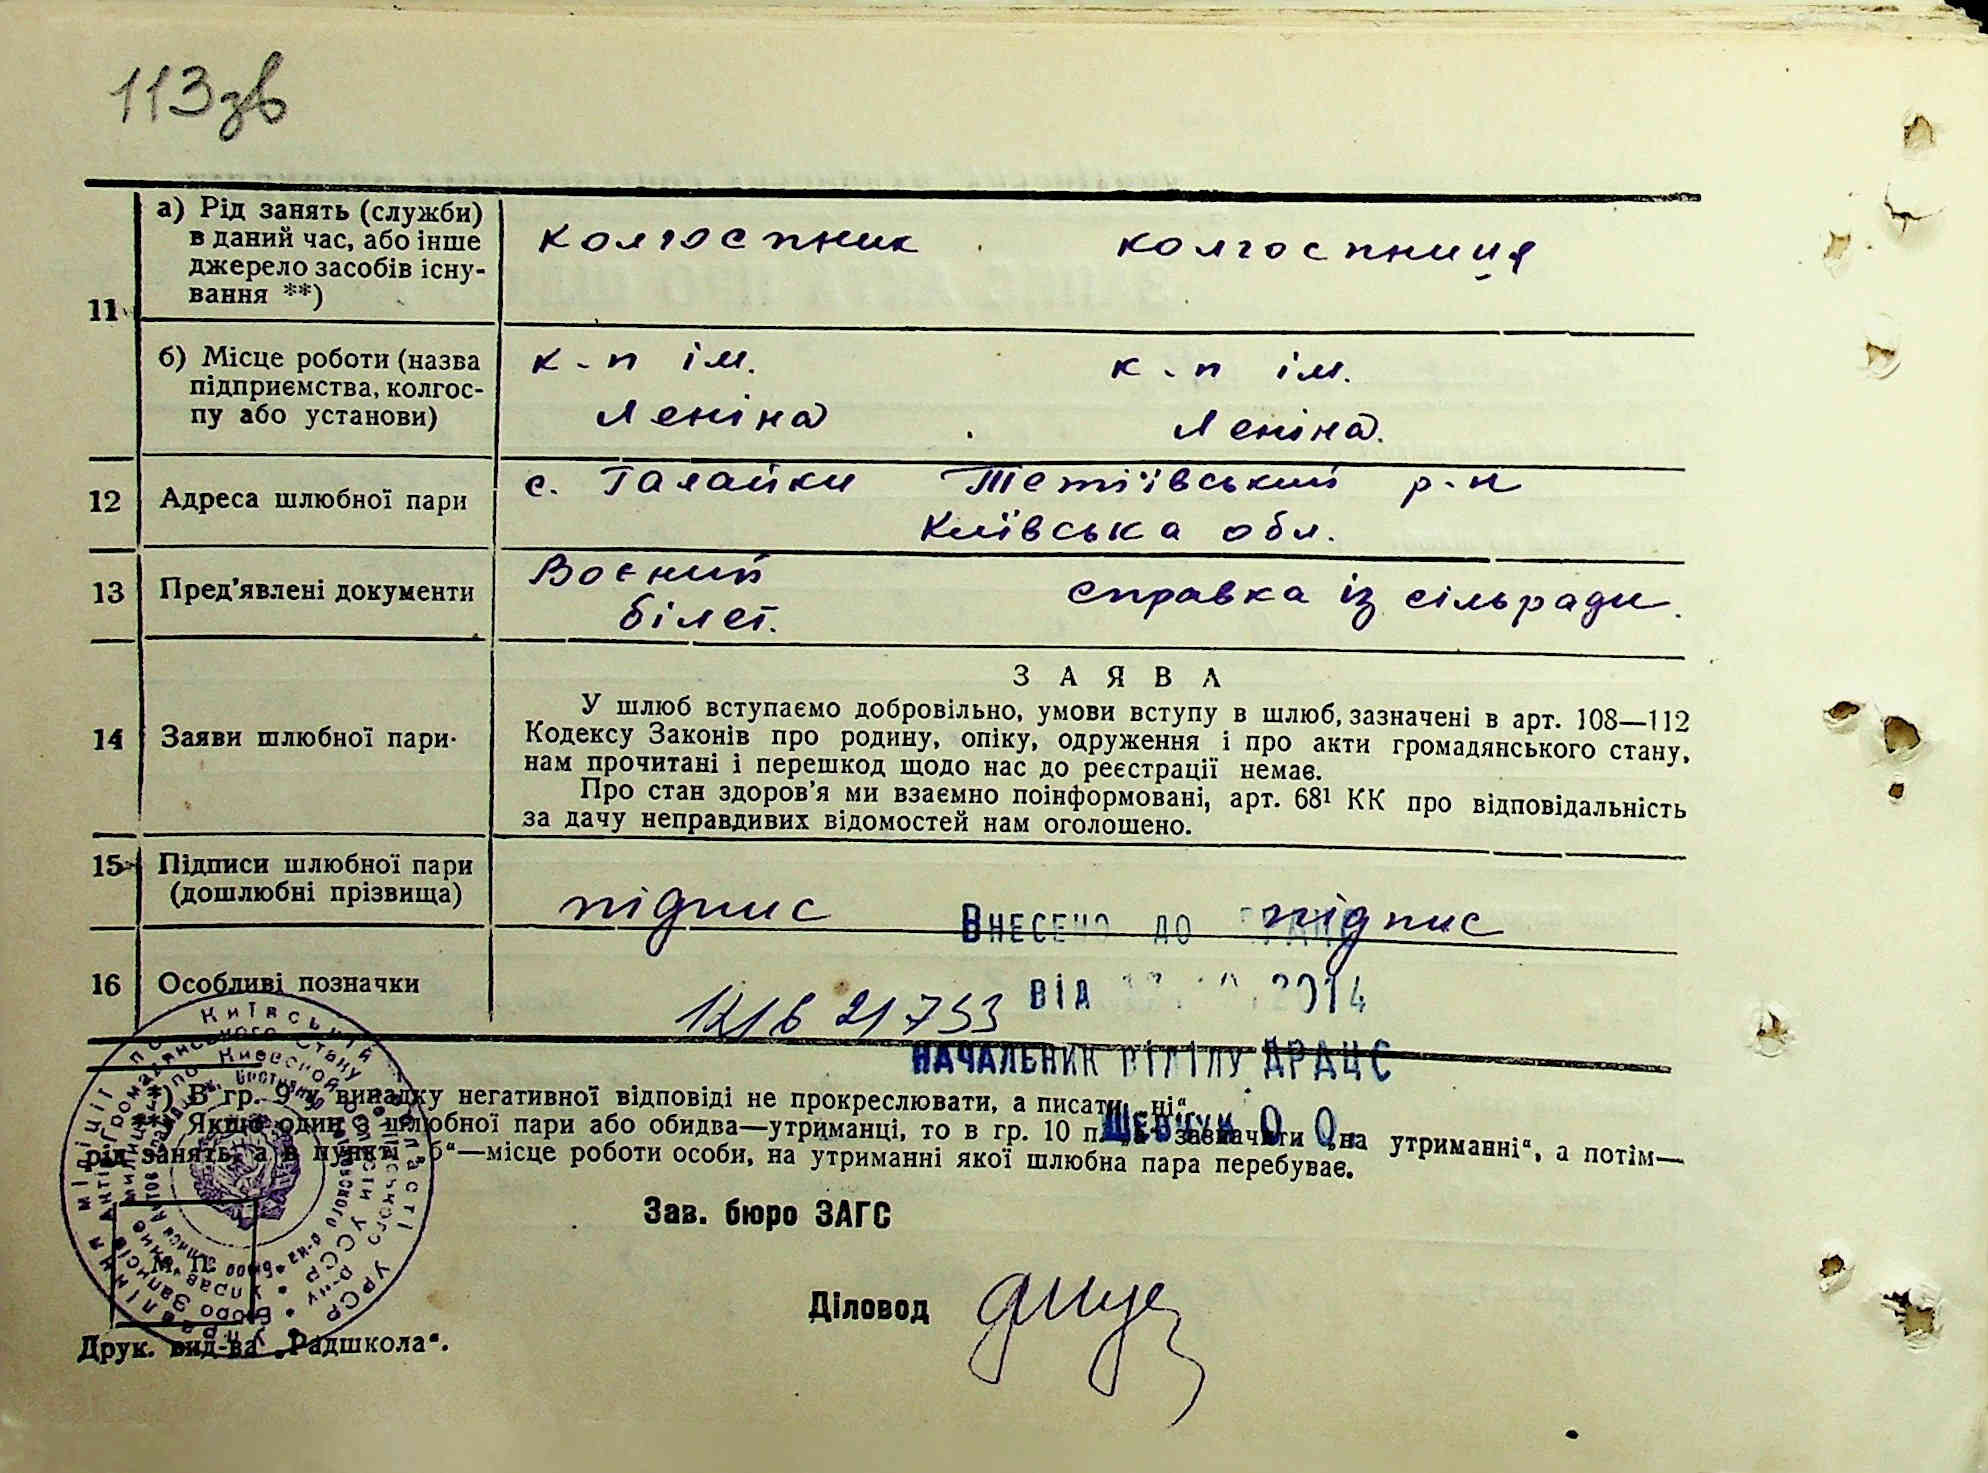 113зв
11
а) Рід занять (служби)
в даний час, або інше
джерело засобів існу-
вання **)
колгоспник колгоспниця
б) Місце роботи (назва
підприємства, колгос-
пу або установи)
к-п ім. к-п ім.
Леніна Леніна.
12 Адреса шлюбної пари
с. Галайки Тетіївський р-н
Київська обл.
13 Пред'явлені документи
Воєний
білет. справка із сільради.
14 Заяви шлюбної пари
ЗАЯВА
У шлюб вступаємо добровільно, умови вступу в шлюб, зазначені в арт. 108—112
Кодексу Законів про родину, опіку, одруження і про акти громадянського стану,
нам прочитані і перешкод щодо нас до реєстрації немає.
Про стан здоров'я ми взаємно поінформовані, арт. 68¹ КК про відповідальність
за дачу неправдивих відомостей нам оголошено.
15 Підписи шлюбної пари
(дошлюбні прізвища)
підпис підпис
Внесено до
16 Особливі позначки
від 2014
НАЧАЛЬНИК ВІДІЛУ ДРАЦС
Шевчук О.О.
*) В гр. 9 у випадку негативної відповіді не прокреслювати, а писати „ні“.
**) Якщо один з шлюбної пари або обидва—утриманці, то в гр. 10 п. „а“ зазначити „на утриманні“, а потім—
рід занять, а в пункті „б“—місце роботи особи, на утриманні якої шлюбна пара перебуває.
Зав. бюро ЗАГС
М. П.
Діловод
Друк. вид-ва „Радшкола“.